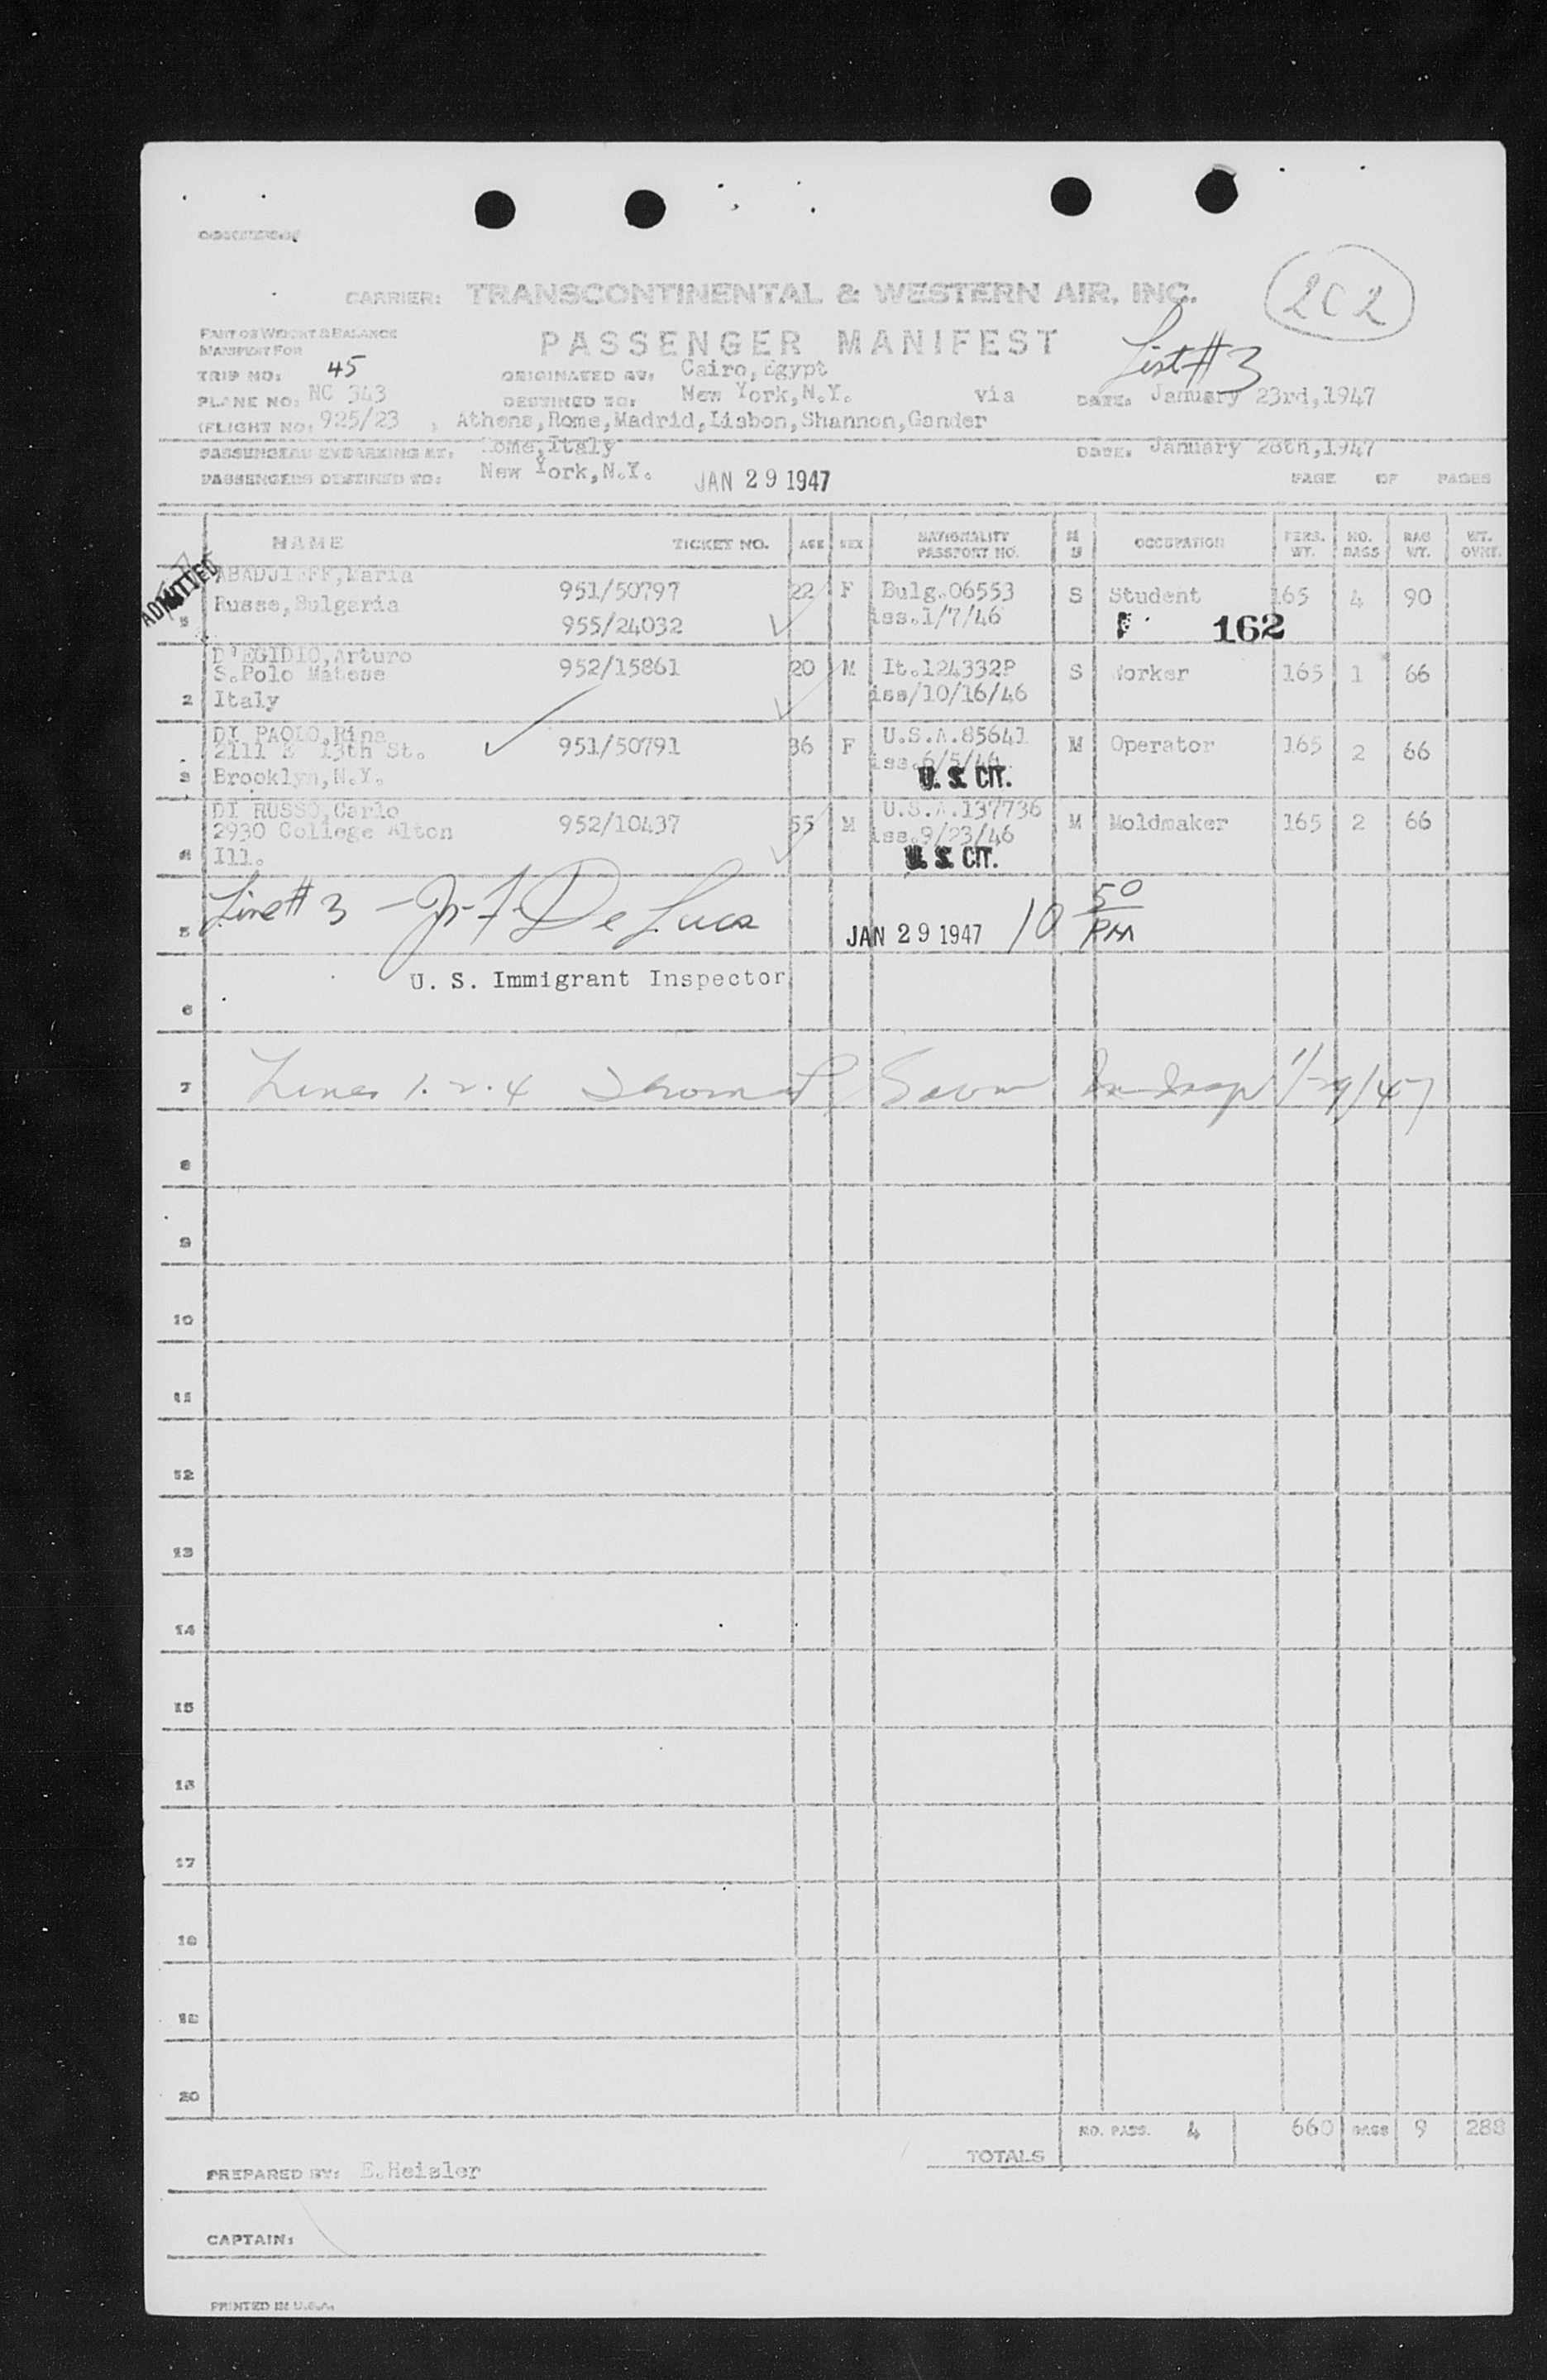 202
CARRIER: TRANSCONTINENTAL & WESTERN AIR, INC.
PART OF WEIGHT & BALANCE
MANIFEST FOR
PASSENGER MANIFEST
List # 3
TRIP NO: 45 ORIGINATED AT: Cairo, Egypt
PLANE NO: NC 343 DESTINED TO: New York, N.Y. via DATE: January 23rd, 1947
(FLIGHT NO: 925/23 , Athens, Rome, Madrid, Lisbon, Shannon, Gander
PASSENGERS EMBARKING AT: Rome, Italy DATE: January 28th, 1947
PASSENGERS DESTINED TO: New York, N.Y. JAN 29 1947 PAGE OF PAGES
NAME TICKET NO. AGE SEX NATIONALITY PASSPORT NO. M S OCCUPATION PERS. WT. NO. BAGS BAG WT. WT. OVHT.
ADMITTED
ABADJIEFF, Maria 951/50797 22 F Bulg. 06553 S Student 165 4 90
Russe, Bulgaria 955/24032 iss. 1/7/46 162
D'EGIDIO, Arturo 952/15861 20 M It. 124332P S Worker 165 1 66
S. Polo Matese iss/10/16/46
2 Italy
DI PAOLO, Rina 951/50791 36 F U.S.A. 85641 M Operator 165 2 66
2111 E 13th St. iss. 6/5/46
3 Brooklyn, N.Y. U. S. CIT.
DI RUSSO, Carlo 952/10437 55 M U.S.A. 137736 M Moldmaker 165 2 66
2930 College Alton iss. 9/23/46
4 Ill. U. S. CIT.
5 Line # 3 - De Luca JAN 29 1947 10 50 PM
U. S. Immigrant Inspector
6
7 Lines 1. 2. 4 1/29/47
8
9
10
11
12
13
14
15
16
17
18
19
20
TOTALS NO. PASS. 4 660 BAGS 9 288
PREPARED BY: E. Heisler
CAPTAIN:
PRINTED IN U.S.A.